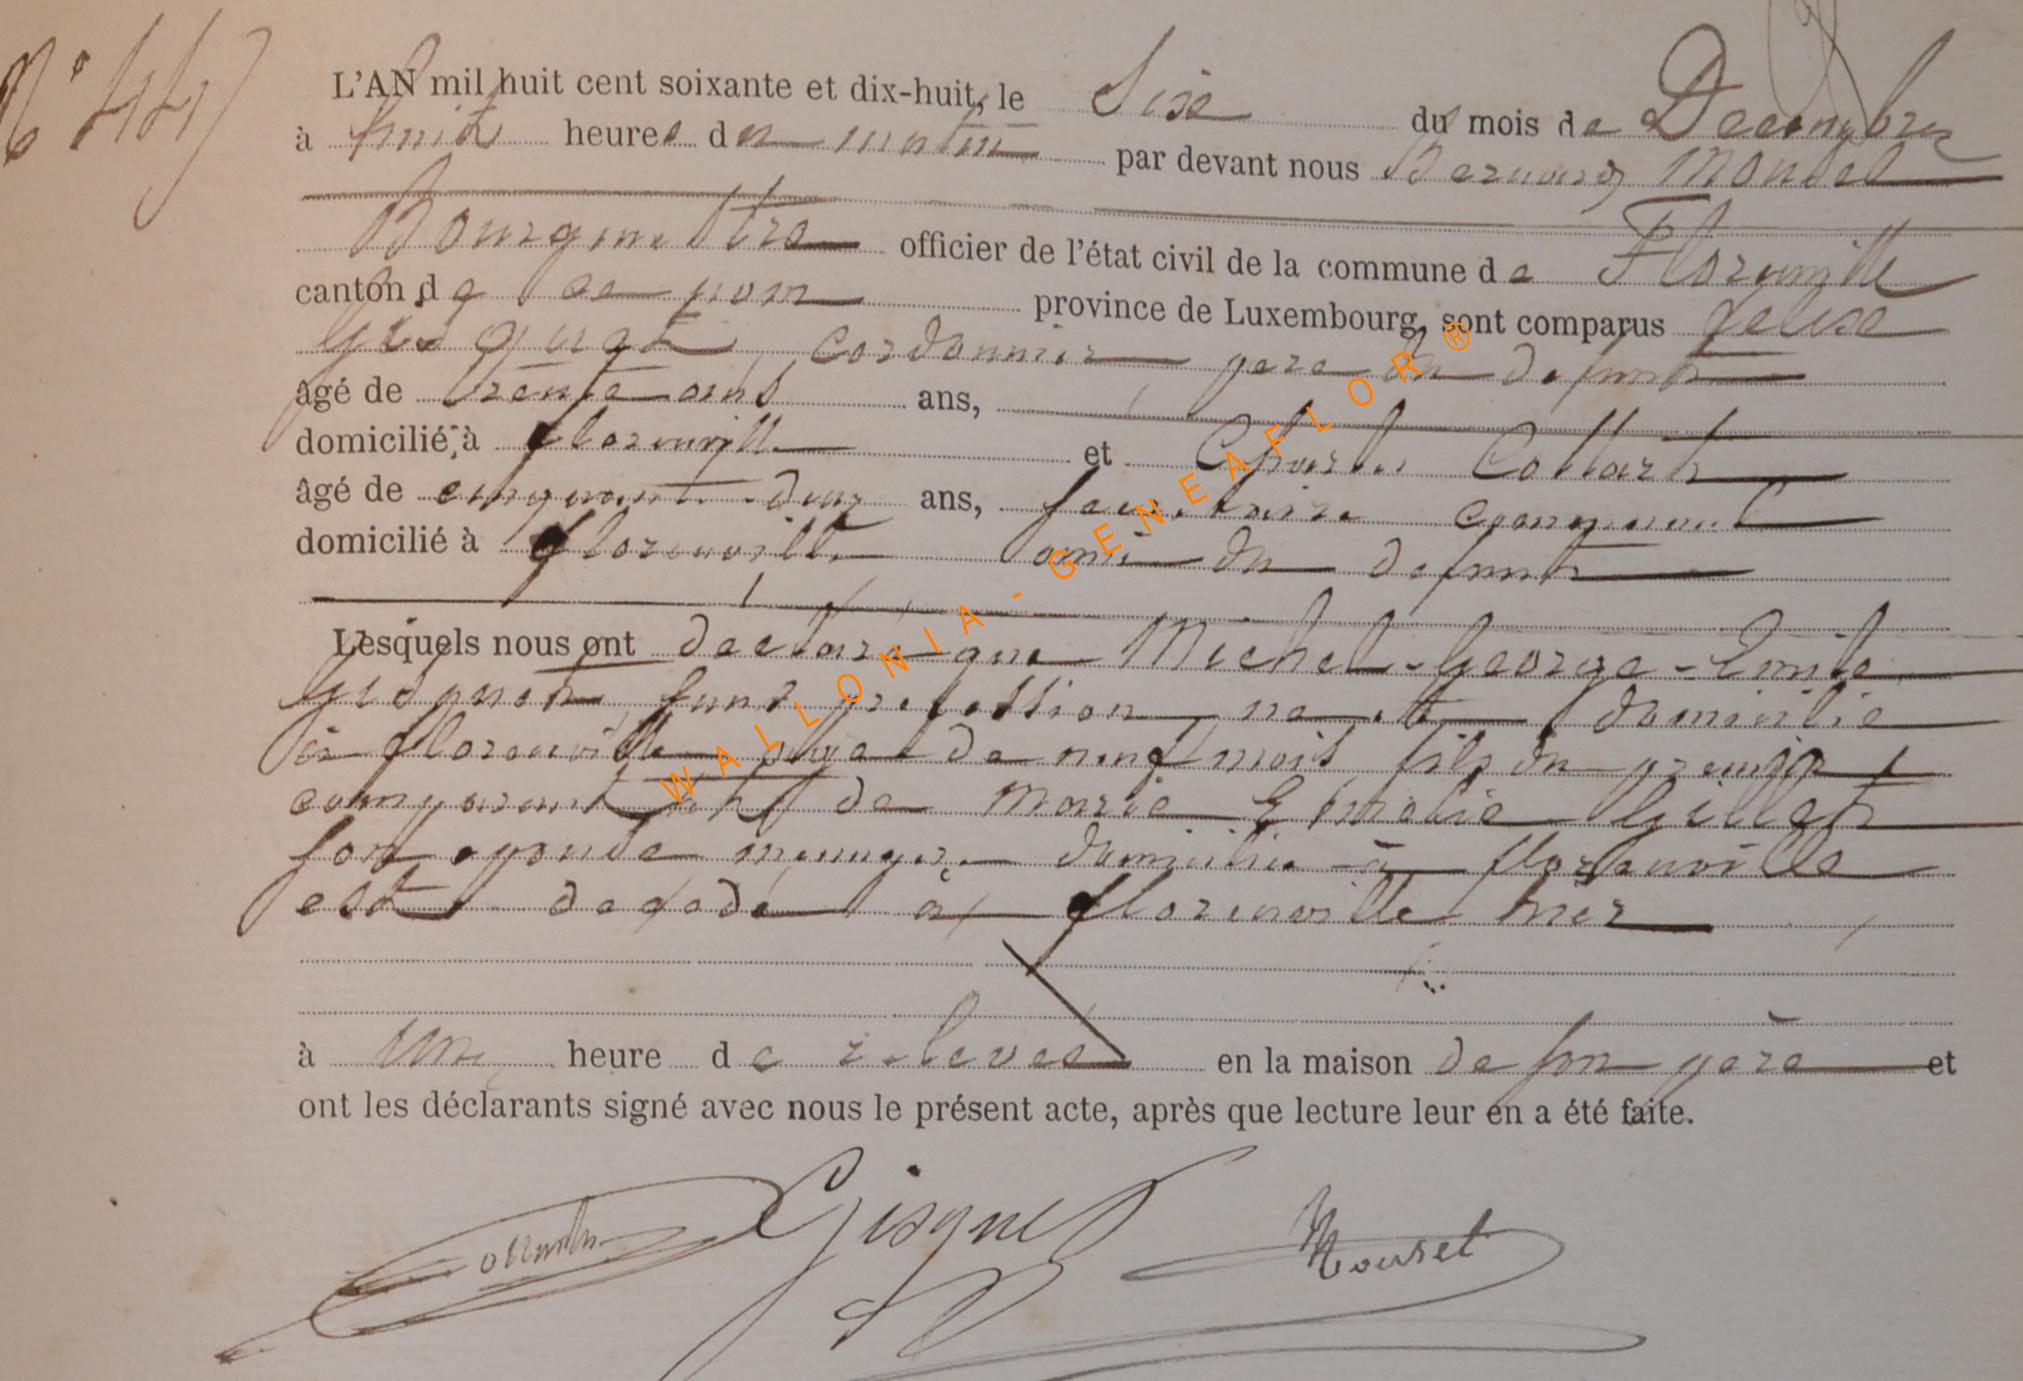 N° 447
L'AN mil huit cent soixante et dix-huit, le Sise du mois de Decembre
à huit heures du matin par devant nous Bernard Mouset
Bourgmestre officier de l'état civil de la commune de Florenville
canton de ce nom province de Luxembourg, sont comparus
Gisquet, cordonnier pere du defunt
âgé de trente ans ans,
domicilié à florenville et Charles Collart
âgé de cinquante-deux ans, secretaire communal
domicilié à florenville ami du defunt
Lesquels nous ont declaré que Michel-George-Emile
Gisquet sans profession né et domicilié
à florenville agé de neuf mois fils du premier
comparant et de Marie Gillet
son epouse menagere domiciliée à florenville
est decedé à florenville hier
à une heure de relevée en la maison de son père et
ont les déclarants signé avec nous le présent acte, après que lecture leur en a été faite.
Collart Gisquet Mouset
WALLONIA-GENEAFLOR®